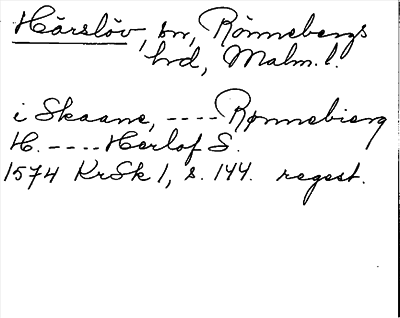 Härslöv, sn, Rönnebergs
hd, Malm.l.
i Skaane, ---- Rønnebierg
H. ---- Herlof S.
1574 KrSk 1, s. 144. regest.